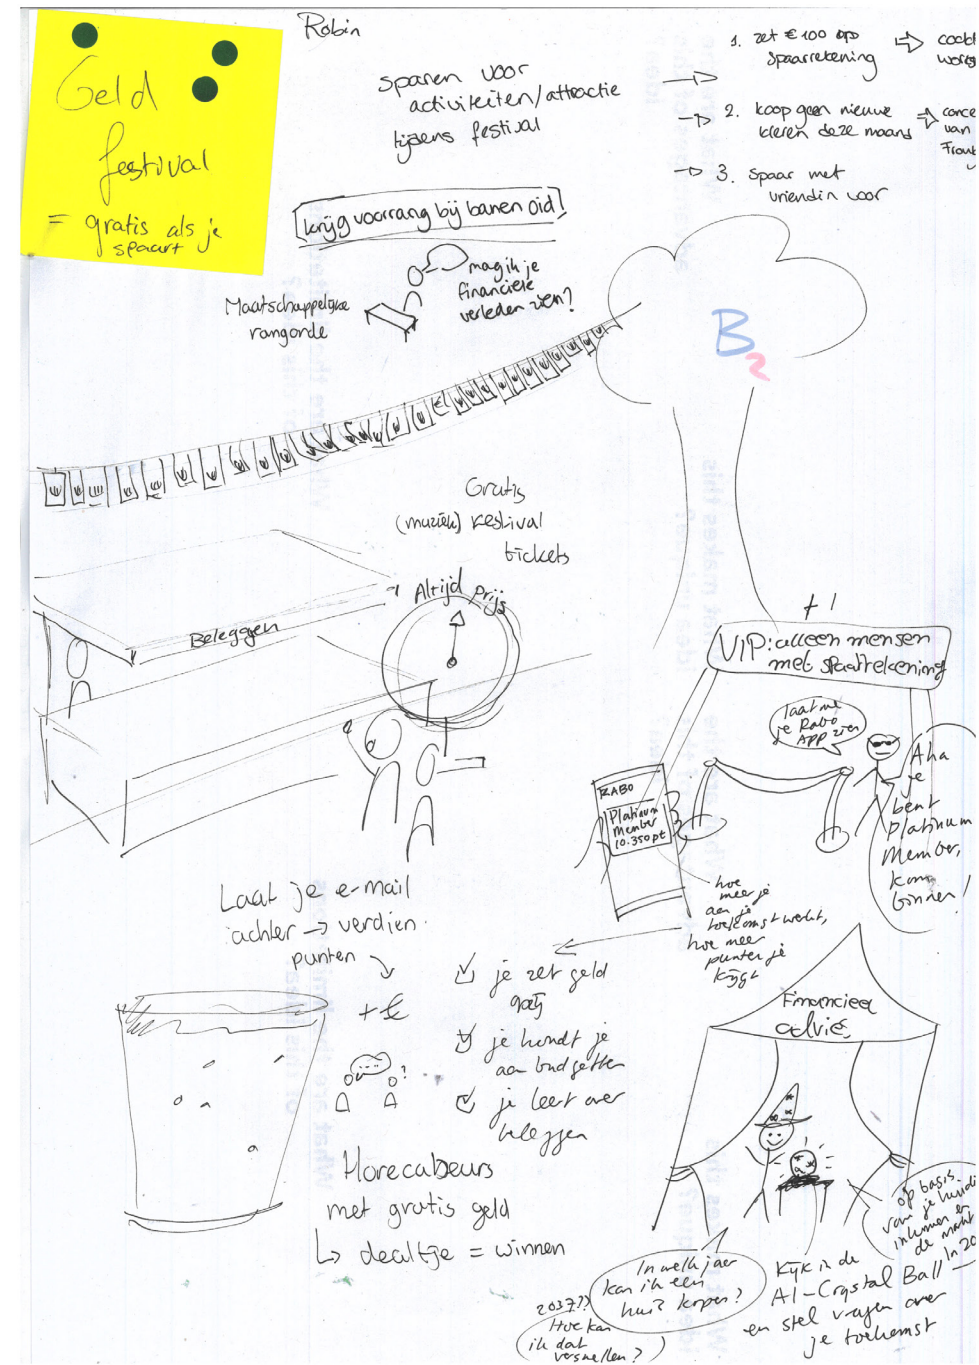 Robin
Geld
festival
= gratis als je
spaart
sparen voor
activiteiten/attractie
tijdens festival
1. zet €100 op
spaarrekening
2. koop geen nieuwe
kleren deze maand
van
3. spaar met
vriendin voor
krijg voorrang bij banen oid!
mag ik je
financiële
verleden zien?
Maatschappelijke
rangorde
B2
Gratis
(muziek) festival
tickets
Altijd prijs
Beleggen
+1
VIP: alleen mensen
met spaarrekening
laat me
je Rabo
APP zien
Aha
je
bent
Platinum
Member,
kom
binnen!
RABO
Platinum
Member
10.350 pt
hoe
meer je
aan je
toekomst werkt,
hoe meer
punten je
krijgt
Laat je e-mail
achter → verdien
punten
+€
je zet geld
opzij
je houdt je
aan budgetten
je leert over
beleggen
?
Horecabeurs
met gratis geld
↳ dealtje = winnen
Financieel
advies
op basis
van je huidi
inkomen en
de markt
In 20
In welk jaar
kan ik een
huis kopen?
2037??
Hoe kan
ik dat
versnellen?
Kijk in de
AI-Crystal Ball
en stel vragen over
je toekomst